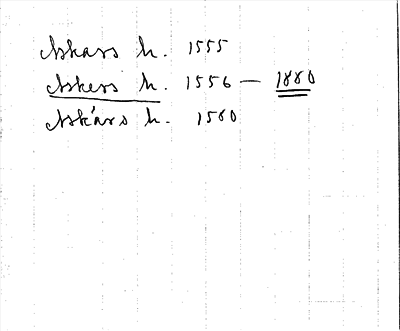 Askars h. 1555
Askers h. 1556 — 1880
Askárs h. 1560